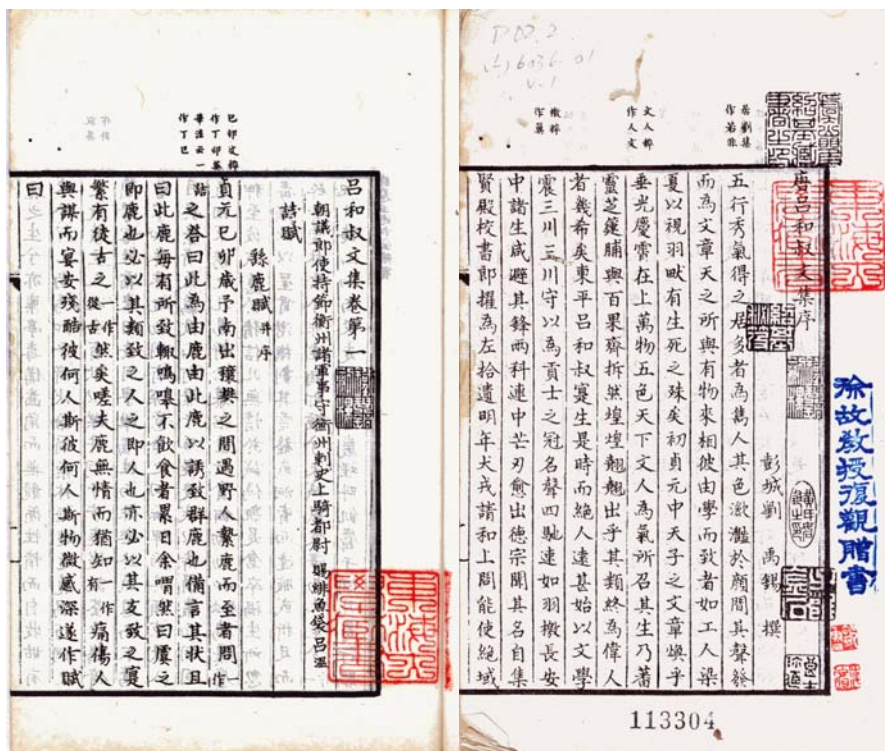 D02.2
(ん)6036-01
v.1
居劉集
作若非
文人粹
作人文
檄粹
作冀
唐呂和叔文集序
彭城劉 禹錫 撰
五行秀氣得之居多者為雋人其色瀲灔於顏間其聲發
而為文章天之所與有物來相彼由學而致者如工人染
夏以視羽畎有生死之殊矣初貞元中天子之文章煥乎
垂光慶霄在上萬物五色天下文人為氣所召其生乃蕃
靈芝萐脯與百果齊坼然煌煌翹翹出乎其類終為偉人
者幾希矣東平呂和叔寔生是時而絕人遠甚始以文學
震三川三川守以為貢士之冠名聲四馳速如羽檄長安
中諸生咸避其鋒兩科連中芒刃愈出德宗聞其名自集
賢殿校書郎擢為左拾遺明年犬戎請和上問能使絕域
徐故教授復觀贈書
113304
己卯文粹
作丁卯英
華注云一
作丁巳
呂和叔文集卷第一
朝議郎使持節衡州諸軍事守衡州刺史上騎都尉賜緋魚袋呂溫
詰賦
由鹿賦并序
貞元己卯歲予南出穰樊之間遇野人縶鹿而至者問一作
詰之荅曰此為由鹿由此鹿以誘致群鹿也備言其狀且
曰此鹿每有所致輒鳴嘷不飲食者累日余喟然曰虞之
即鹿也必以其類致之人之即人也亦必以其友致之寔
繁有徒古之一作從古然矣嗟夫鹿無情而猶知一作有痛傷人
與謀而宴安殘酷彼何人斯彼何人斯物微感深遂作賦
曰